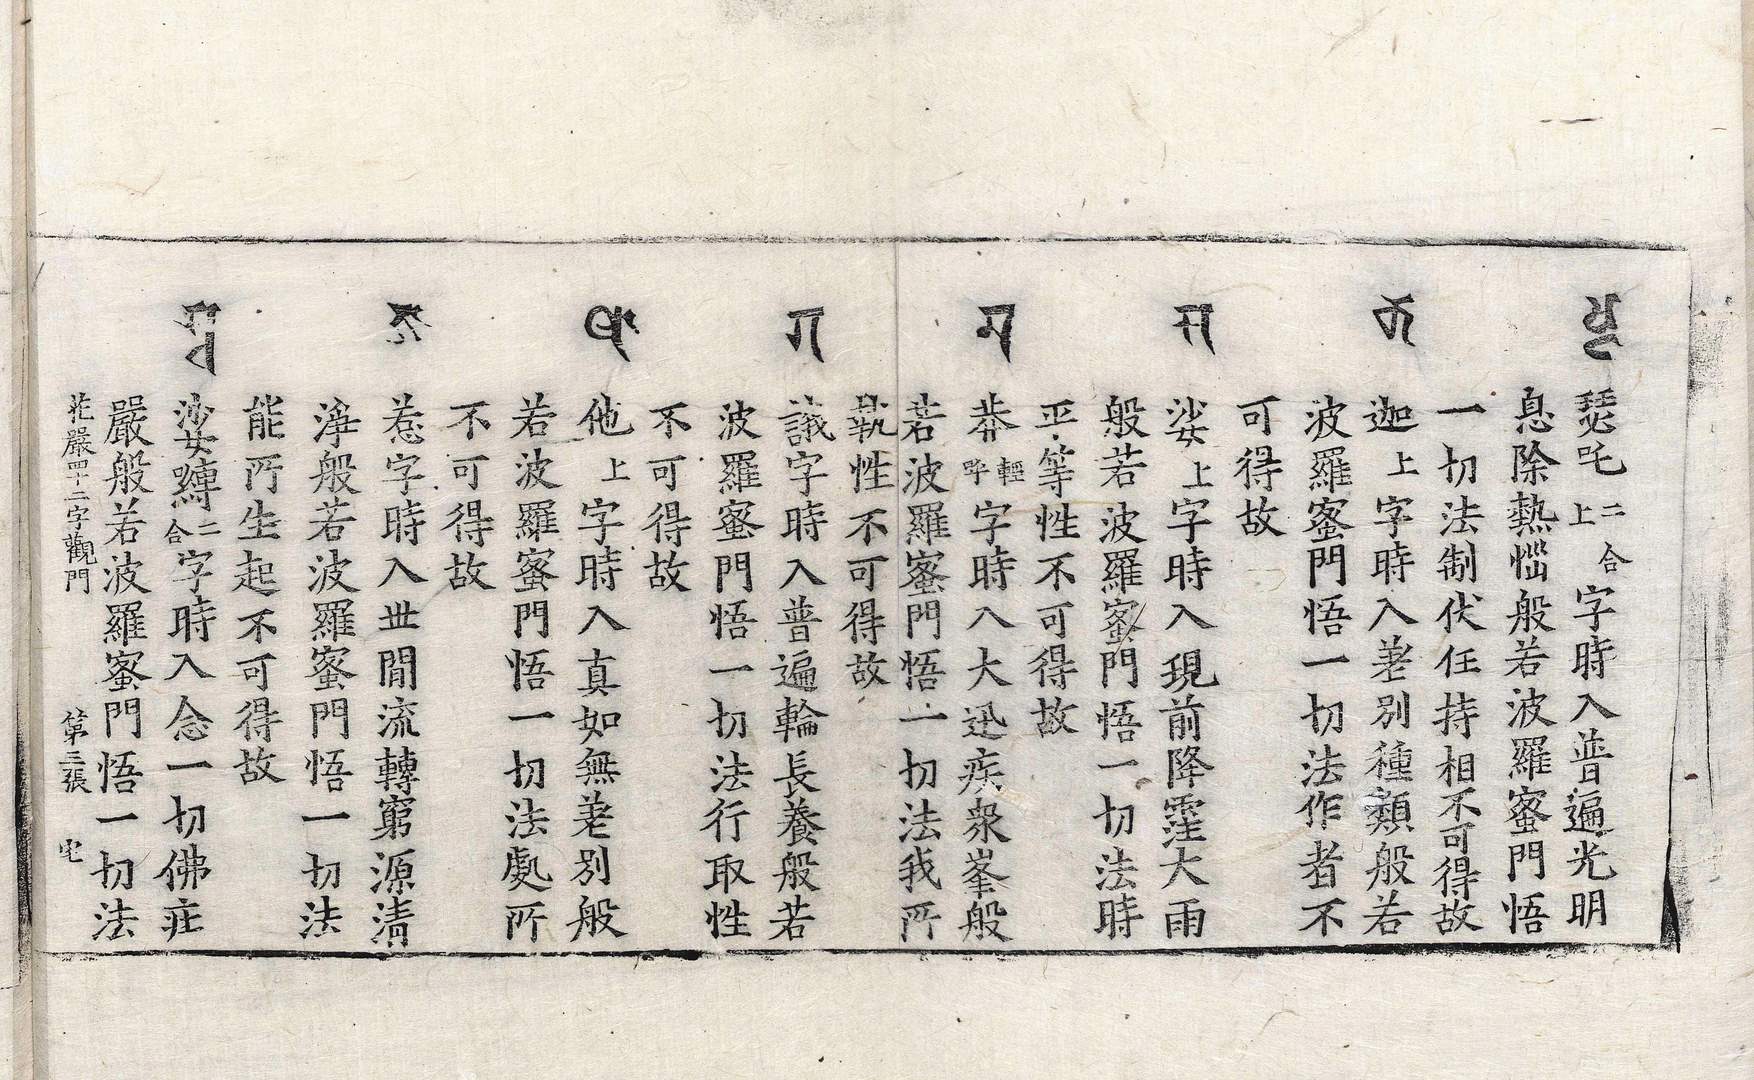 𑖬𑖿𑖘
瑟吒二合上字時入普遍光明
息除熱惱般若波羅蜜門悟
一切法制伏任持相不可得故
𑖎
迦上字時入差別種類般若
波羅蜜門悟一切法作者不
可得故
𑖭
娑上字時入現前降霔大雨
般若波羅蜜門悟一切法時
平等性不可得故
𑖦
莽輕呼字時入大迅疾衆峯般
若波羅蜜門悟一切法我所
執性不可得故
𑖐
誐字時入普遍輪長養般若
波羅蜜門悟一切法行取性
不可得故
𑖞
他上字時入真如無差別般
若波羅蜜門悟一切法處所
不可得故
𑖕
惹字時入世間流轉窮源清
淨般若波羅蜜門悟一切法
能所生起不可得故
𑖫𑖿𑖪
沙嚩二合字時入念一切佛莊
嚴般若波羅蜜門悟一切法
花嚴四十二字觀門　第三張　宅